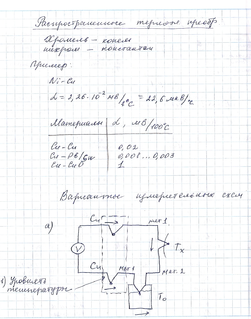 Распространенное термоэл преобр
Хромель – копель
нихром – константан
Пример:
Ni-Cu
α = 2,26·10⁻² мВ/1°C = 22,6 мкВ/
Материалы | α, мВ/100°C
Cu-Cu 0,02
Cu-Pb/Sn 0,001...0,003
Cu-CuO 1
Варианты измерительных схем
а)
Cu
мет.1
V
Tx
Cu
мет.1
мет.2
Уровнять
температуры
T₀